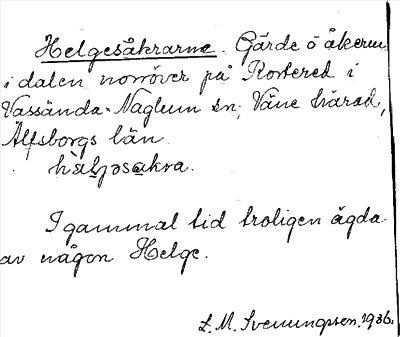 Helgesåkrarne. Gärde o åkerm
i dalen norröver på Rostered i
Vassända-Naglum sn, Väne härad,
Älfsborgs län.
hàl̥jəsakra.
I gammal tid troligen ägda
av någon Helge.
L. M. Svenungsson. 1936.